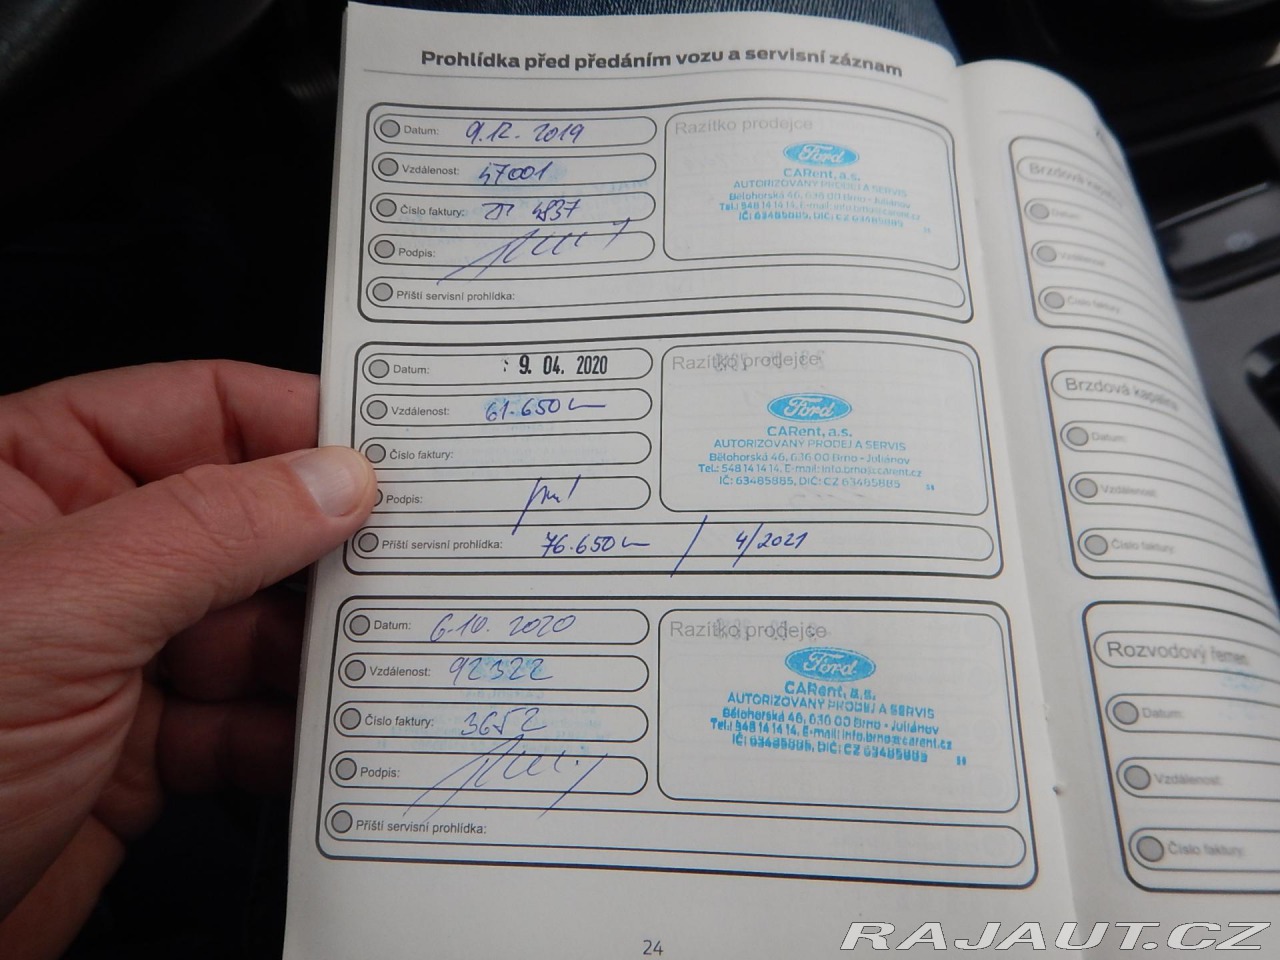 Prohlídka před předáním vozu a servisní záznam
Datum: 9.12. 2019
Vzdálenost: 47001
Číslo faktury: 4837
Podpis:
Příští servisní prohlídka:
Razítko prodejce
Ford
CARent, a.s.
AUTORIZOVANÝ PRODEJ A SERVIS
Bělohorská 46, 636 00 Brno - Juliánov
Tel.: 548 14 14 14, E-mail: info.brno@carent.cz
IČ: 63485885, DIČ: CZ 63485885
Datum: 9. 04. 2020
Vzdálenost: 61.650
Číslo faktury:
Podpis:
Příští servisní prohlídka: 76.650 / 4/2021
Razítko prodejce
Ford
CARent, a.s.
AUTORIZOVANÝ PRODEJ A SERVIS
Bělohorská 46, 636 00 Brno - Juliánov
Tel.: 548 14 14 14, E-mail: info.brno@carent.cz
IČ: 63485885, DIČ: CZ 63485885
Datum: 6.10. 2020
Vzdálenost: 92322
Číslo faktury: 3652
Podpis:
Příští servisní prohlídka:
Razítko prodejce
Ford
CARent, a.s.
AUTORIZOVANÝ PRODEJ A SERVIS
Bělohorská 46, 636 00 Brno - Juliánov
Tel.: 548 14 14 14, E-mail: info.brno@carent.cz
IČ: 63485885, DIČ: CZ 63485885
24
Brzdová kapalina
Datum:
Vzdálenost:
Číslo faktury:
Brzdová kapalina
Datum:
Vzdálenost:
Číslo faktury:
Rozvodový řemen
Datum:
Vzdálenost:
Číslo faktury:
RAJAUT.CZ